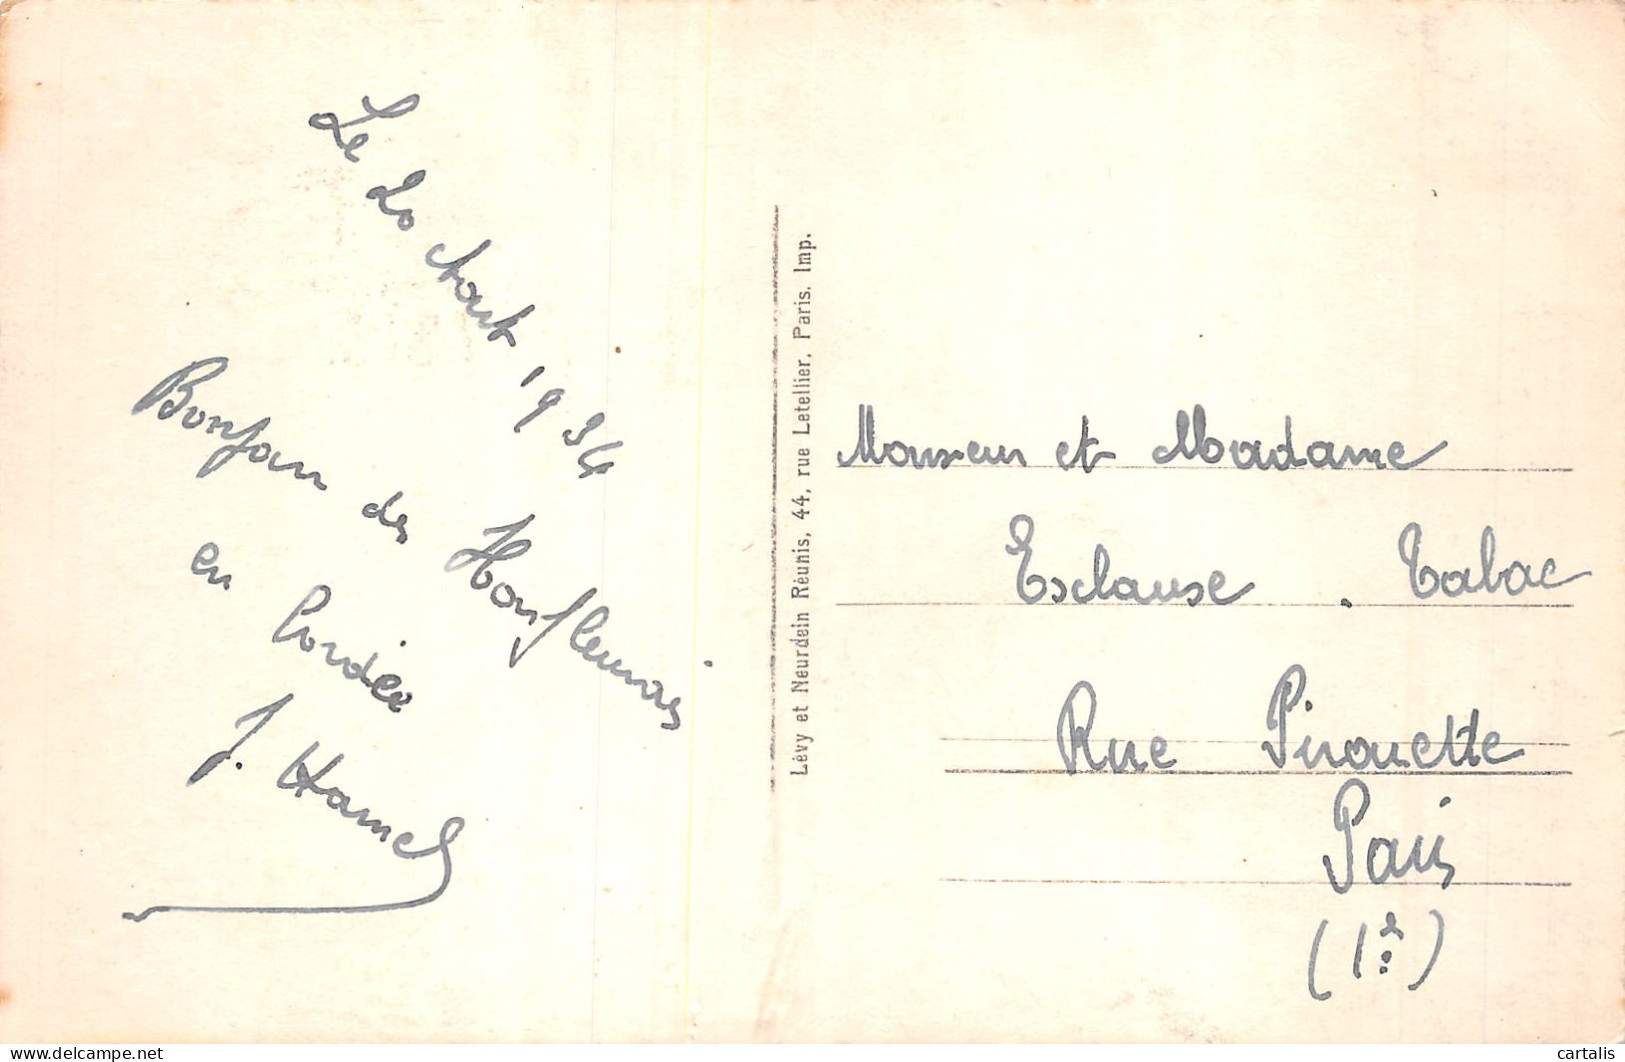 Le 20 Aout 1934
Bonjour des Honfleurais
en
J. Hamel
Lévy et Neurdein Réunis, 44, rue Letellier, Paris. Imp.
Monsieur et Madame
Esclause . Tabac
Rue Pirouette
Paris
(1er)
cartalis